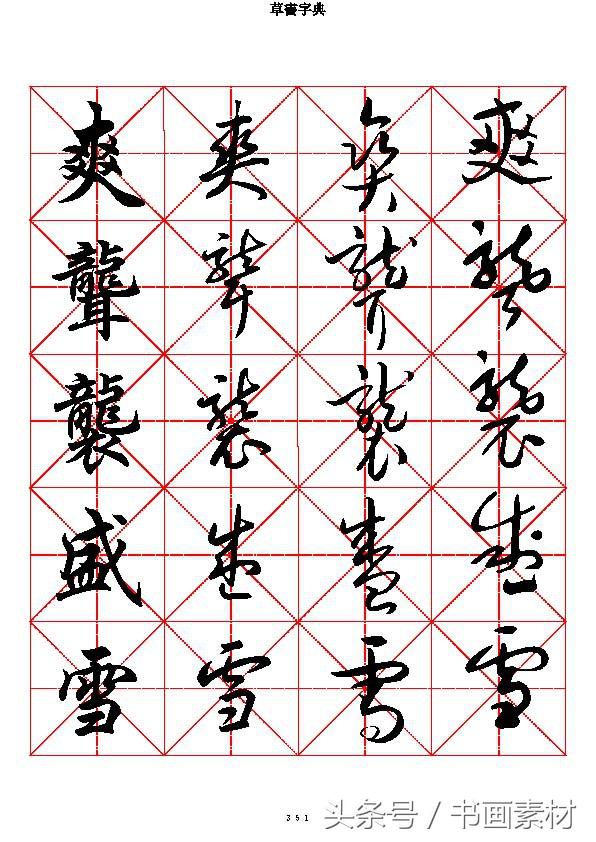 草書字典
爽 爽 爽 爽
聾 聾 聾 聾
襲 襲 襲 襲
盛 盛 盛 盛
雪 雪 雪 雪
351
头条号 / 书画素材